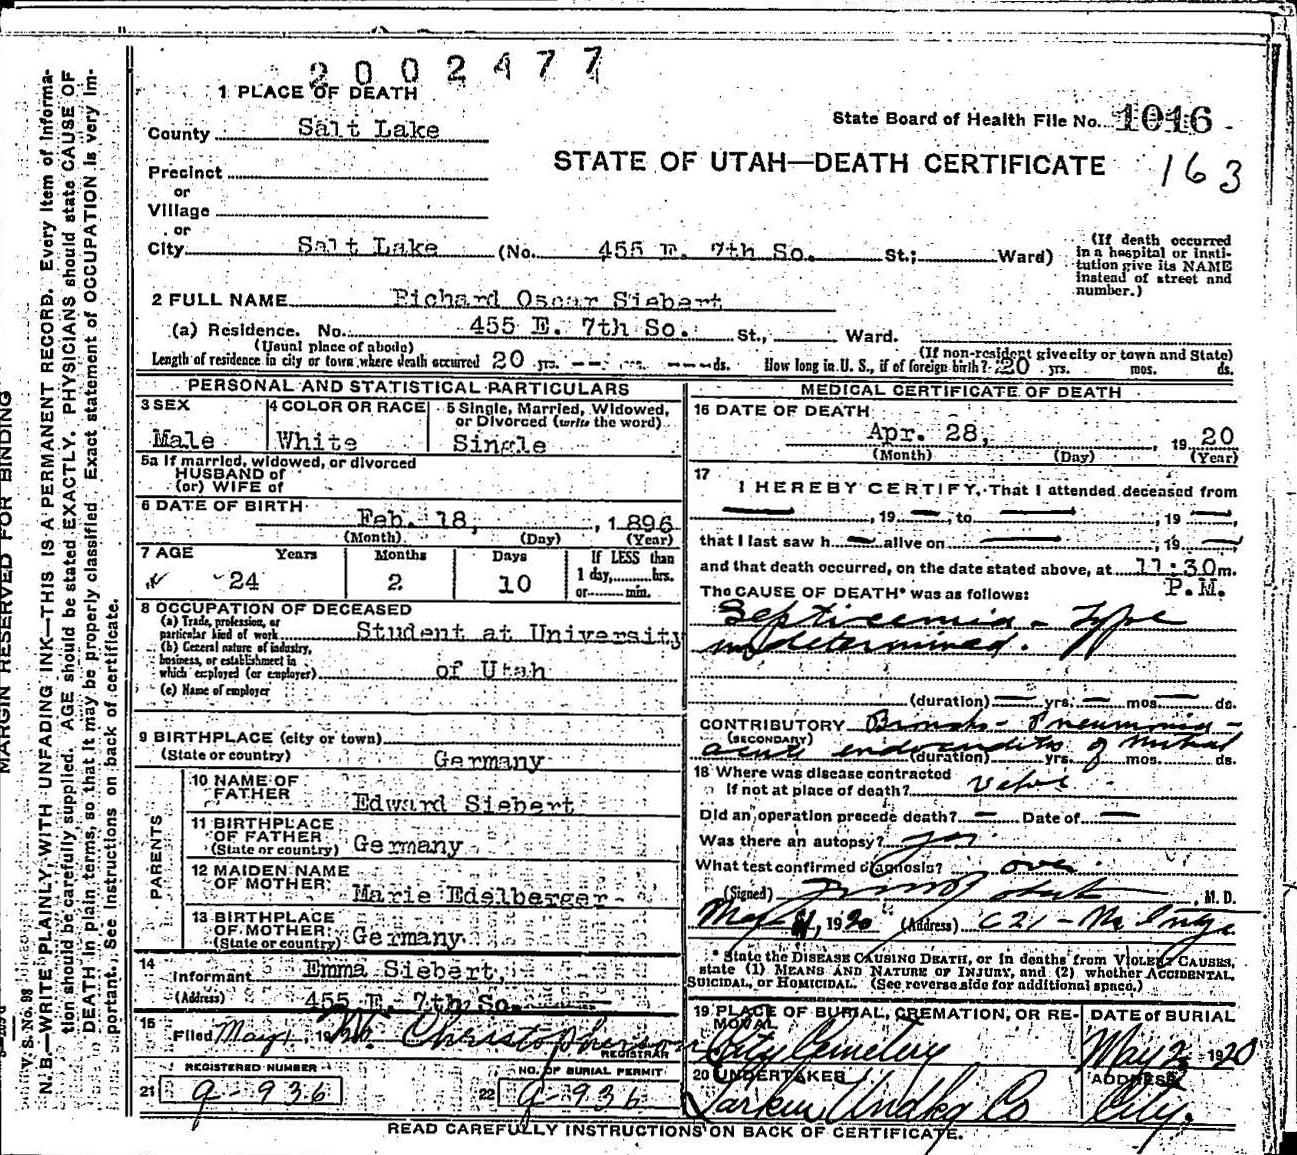 2002477
1 PLACE OF DEATH
County Salt Lake
State Board of Health File No. 1016
163
STATE OF UTAH—DEATH CERTIFICATE
Precinct
or
Village
or
City Salt Lake (No. 455 E. 7th So. St.; Ward)
(If death occurred in a hospital or institution give its NAME instead of street and number.)
2 FULL NAME Richard Oscar Siebert
(a) Residence. No. 455 E. 7th So. St., Ward.
(Usual place of abode) (If non-resident give city or town and State)
Length of residence in city or town where death occurred 20 yrs. — mos. — ds. How long in U. S., if of foreign birth? 20 yrs. mos. ds.
PERSONAL AND STATISTICAL PARTICULARS
3 SEX Male
4 COLOR OR RACE White
5 Single, Married, Widowed, or Divorced (write the word) Single
5a If married, widowed, or divorced
HUSBAND of
(or) WIFE of
6 DATE OF BIRTH Feb. 18, , 1896
(Month) (Day) (Year)
7 AGE Years Months Days If LESS than
24 2 10 1 day, hrs.
or min.
8 OCCUPATION OF DECEASED
(a) Trade, profession, or particular kind of work Student at University
(b) General nature of industry, business, or establishment in which employed (or employer) of Utah
(c) Name of employer
9 BIRTHPLACE (city or town)
(State or country) Germany
PARENTS
10 NAME OF FATHER Edward Siebert
11 BIRTHPLACE OF FATHER (State or country) Germany
12 MAIDEN NAME OF MOTHER Marie Edelberger
13 BIRTHPLACE OF MOTHER (State or country) Germany
14 Informant Emma Siebert,
(Address) 455 E. 7th So.
15 Filed May 1, 19 Christopherson
REGISTRAR
REGISTERED NUMBER
21 9-936
NO. OF BURIAL PERMIT
22 9-936
MEDICAL CERTIFICATE OF DEATH
16 DATE OF DEATH
Apr. 28, , 1920
(Month) (Day) (Year)
17 I HEREBY CERTIFY, That I attended deceased from
—, 19 —, to —, 19 —,
that I last saw h — alive on —, 19 —
and that death occurred, on the date stated above, at 11:30 m.
P.M.
The CAUSE OF DEATH* was as follows:
Septicemia - Type
undetermined.
(duration) — yrs. — mos. — ds.
CONTRIBUTORY Broncho-Pneumonia -
(SECONDARY) acute endocarditis of mitral
(duration) yrs. mos. ds.
18 Where was disease contracted
If not at place of death?
Did an operation precede death? — Date of —
Was there an autopsy? yes.
What test confirmed diagnosis?
(Signed) , M. D.
May , 1920 (Address)
* State the DISEASE CAUSING DEATH, or in deaths from VIOLENT CAUSES, state (1) MEANS AND NATURE OF INJURY, and (2) whether ACCIDENTAL, SUICIDAL, or HOMICIDAL. (See reverse side for additional space.)
19 PLACE OF BURIAL, CREMATION, OR REMOVAL City Cemetery
DATE of BURIAL May 2, 1920
20 UNDERTAKER Larkin Undkg Co
ADDRESS City.
READ CAREFULLY INSTRUCTIONS ON BACK OF CERTIFICATE.
MARGIN RESERVED FOR BINDING
V. S. No.
N. B.—WRITE PLAINLY, WITH UNFADING INK—THIS IS A PERMANENT RECORD. Every item of information should be carefully supplied. AGE should be stated EXACTLY. PHYSICIANS should state CAUSE OF DEATH in plain terms, so that it may be properly classified. Exact statement of OCCUPATION is very important. See instructions on back of certificate.